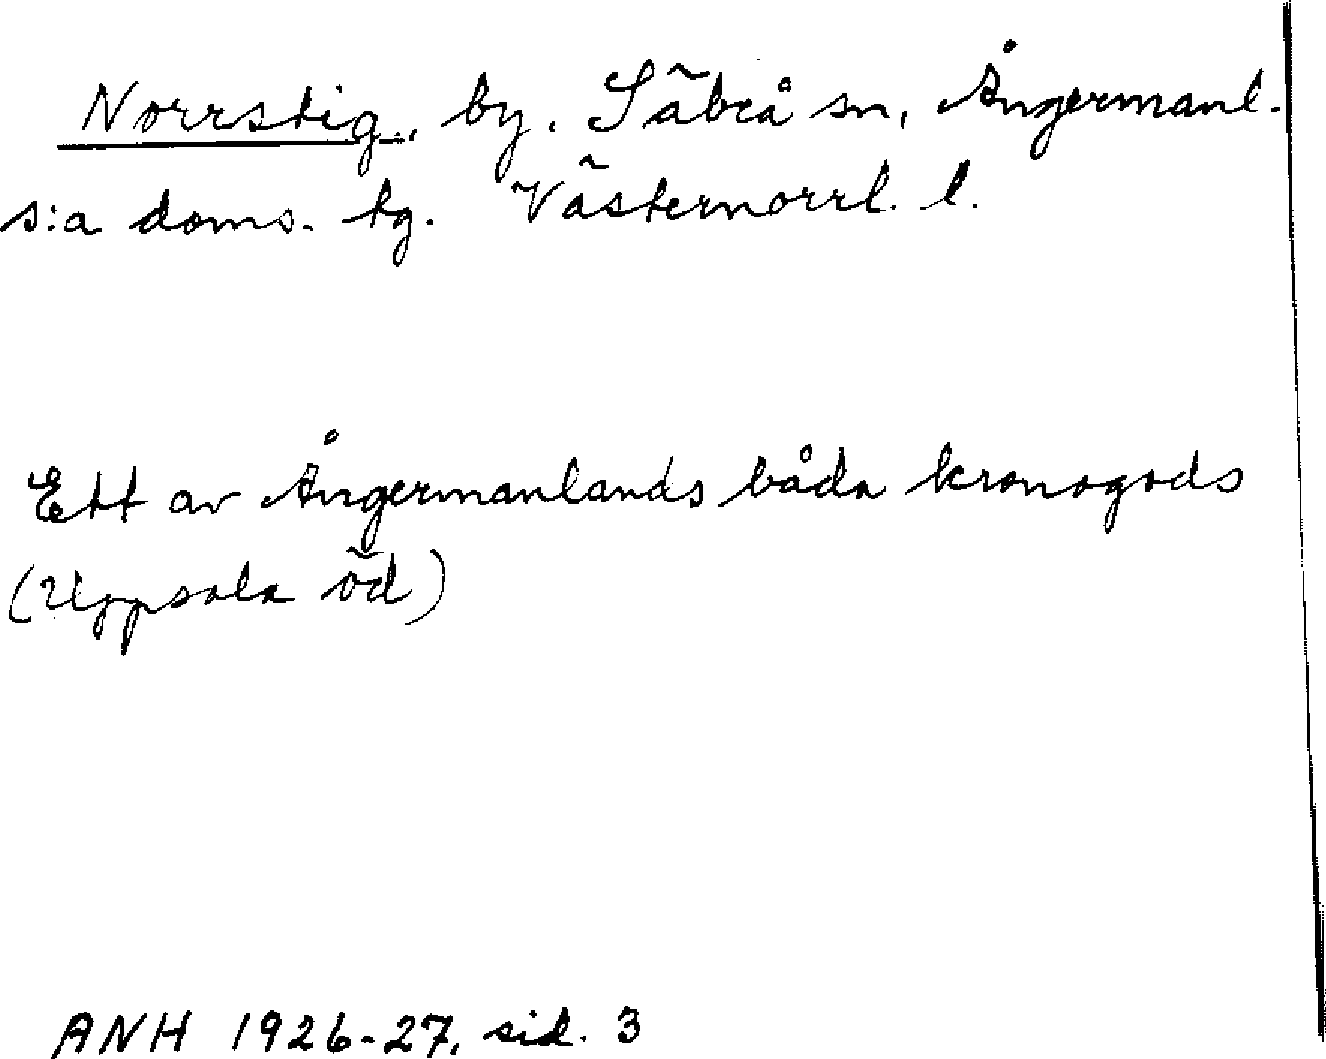 Norrstig, by, Säbrå sn, Ångermanl.
s:a doms. tg. Västernorrl. l.
Ett av Ångermanlands båda kronogods
(Uppsala öd)
ANH 1926-27, sid. 3